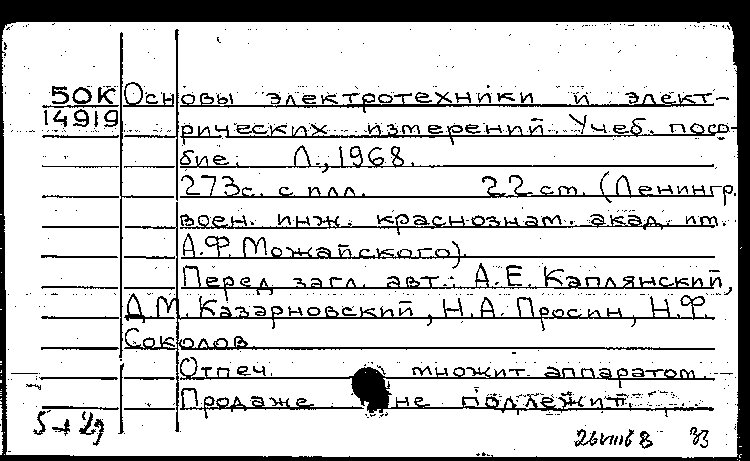 50К Основы электротехники и элект-
14919 рических измерений. Учеб. посо-
бие. Л., 1968.
273с. с илл. 22 см. (Ленингр.
воен. инж. краснознам. акад. им.
А.Ф. Можайского).
Перед загл. авт.: А.Е. Каплянский,
Д.М. Казарновский, Н.А. Просин, Н.Ф.
Соколов.
Отпеч. множит. аппаратом.
Продаже не подлежит.